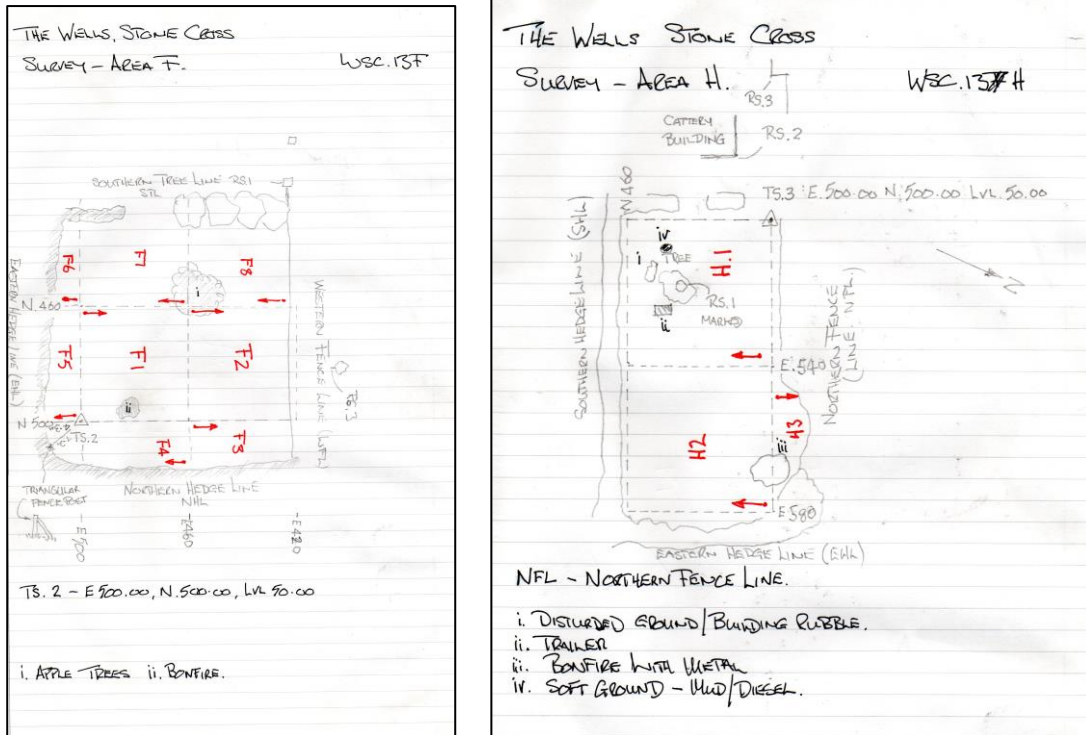 THE WELLS, STONE CROSS
SURVEY - AREA F. WSC.13F
SOUTHERN TREE LINE RS.1
STL
F6
F7
F8
i
EASTERN HEDGE LINE (EHL)
N.460
F5
F1
F2
WESTERN FENCE LINE (WFL)
TS.3
ii
N 500
TS.2
F4
F3
TRIANGULAR
FENCE POST
NORTHERN HEDGE LINE
NHL
E 500
E460
E 420
TS.2 - E500.00, N.500.00, LVL 50.00
i. APPLE TREES ii. BONFIRE.
THE WELLS STONE CROSS
SURVEY - AREA H. WSC.13 H
RS.3
CATTERY
BUILDING
RS.2
N 460
TS.3 : E.500.00 N.500.00 LVL.50.00
SOUTHERN HEDGE LINE (SHL)
iv
TREE
i
H.1
RS.1
MARKED
ii
N
NORTHERN FENCE
(LINE. NFL)
E.540
H2
H3
iii
E 580
EASTERN HEDGE LINE (EHL)
NFL - NORTHERN FENCE LINE.
i. DISTURDED GROUND/BUILDING RUBBLE.
ii. TRAILER
iii. BONFIRE WITH METAL
iv. SOFT GROUND - MUD/DIESEL.